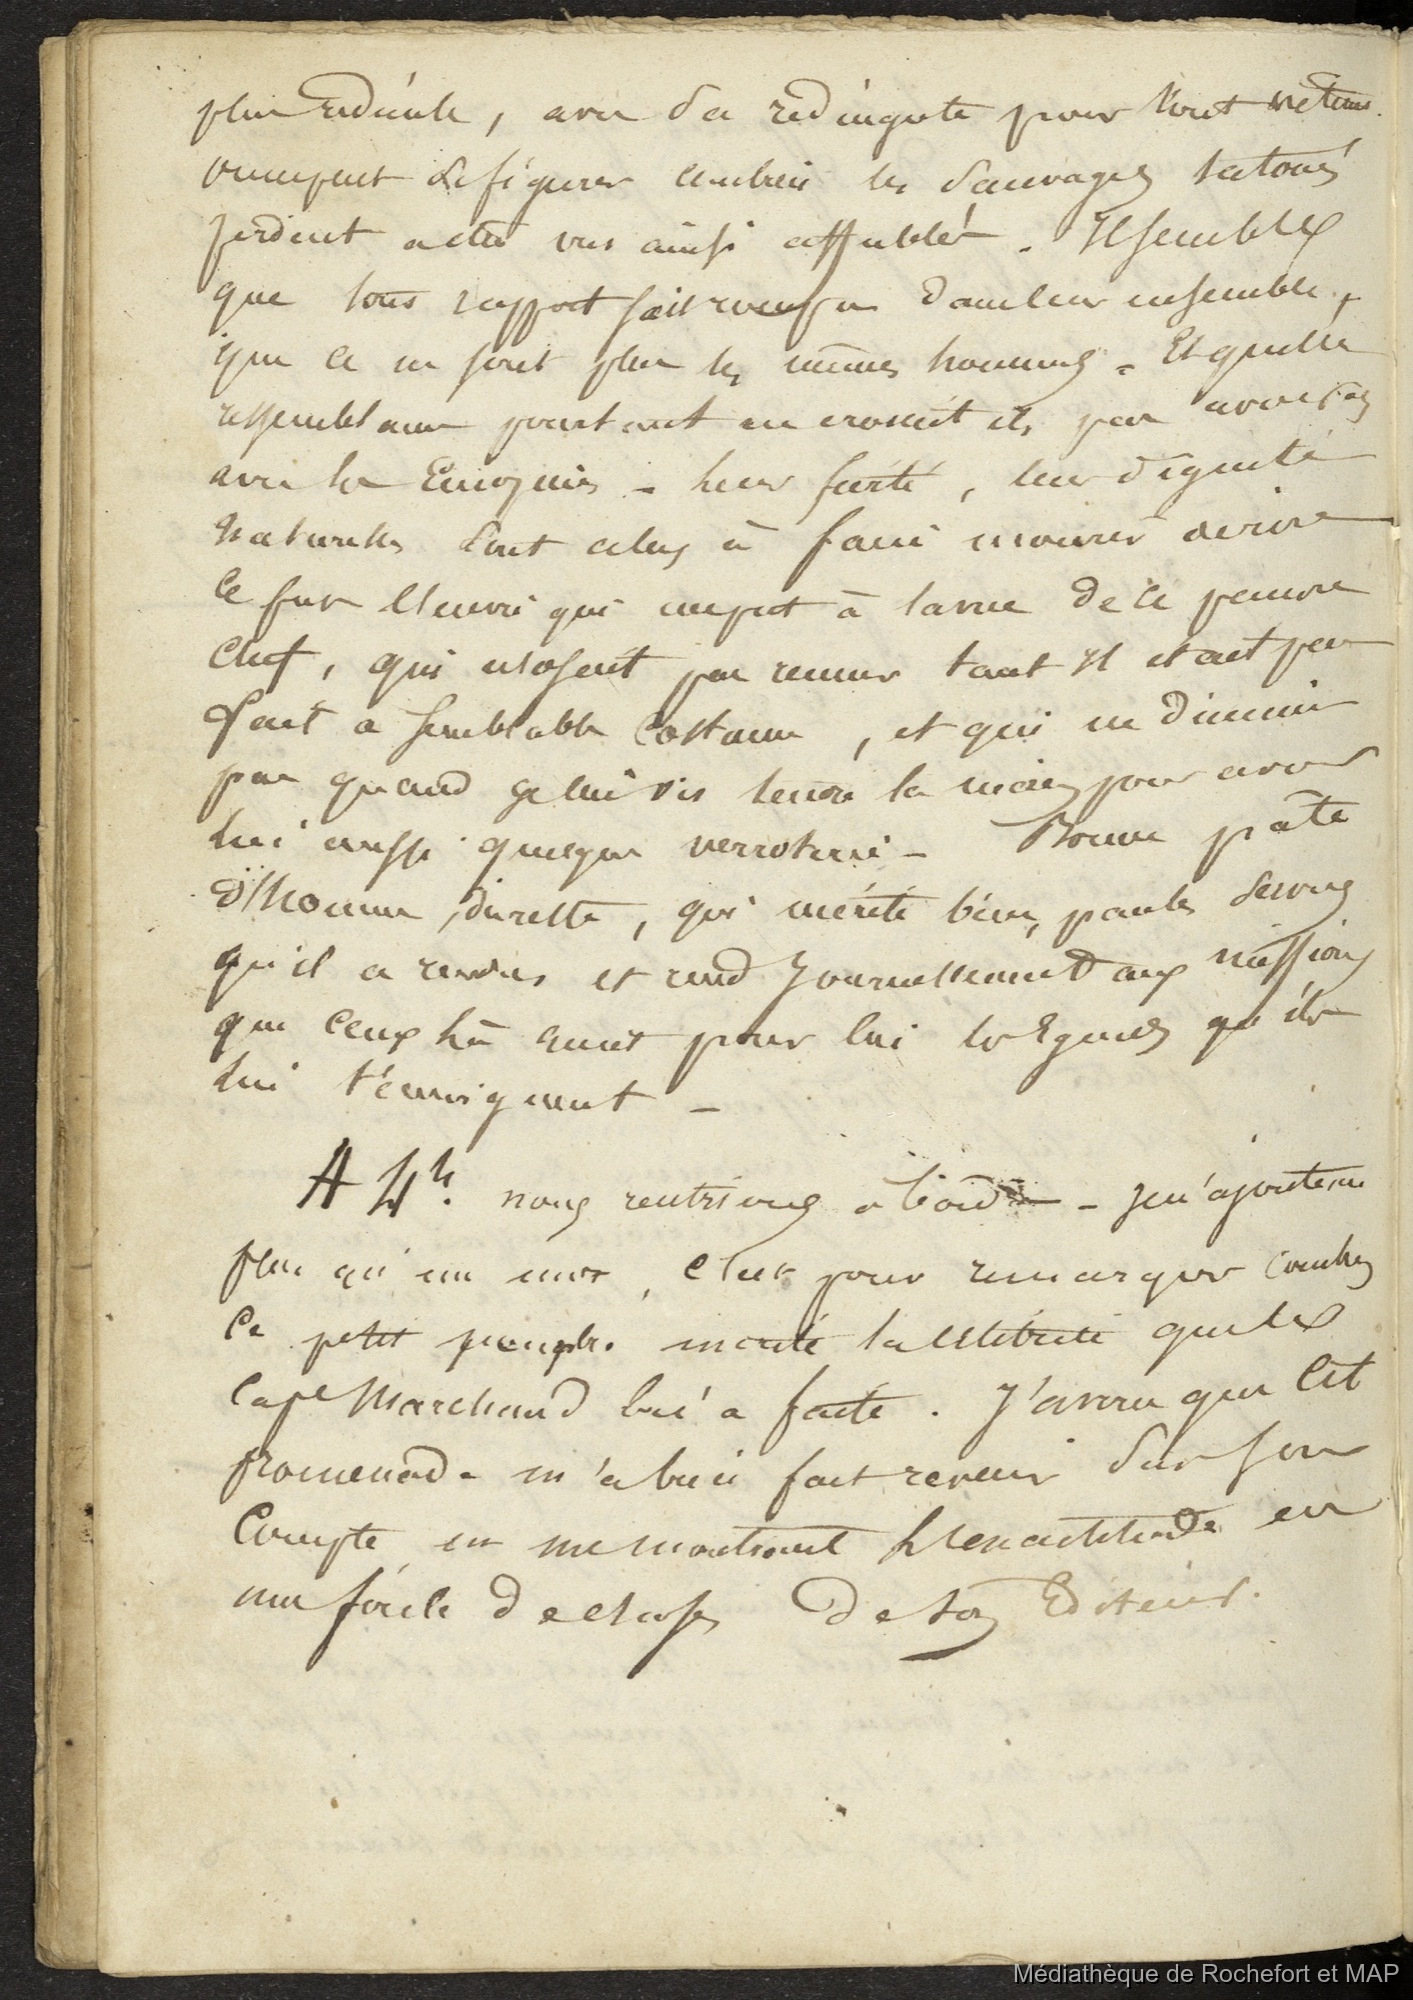 plus ridicule, avec sa redingote pour tout vetem.
on ne peut se figurer combien les sauvages tatoués
perdent a etre vus ainsi affublés. Il semble
que tout rapport soit rompu dans leur ensemble,
que ce ne sont plus les mêmes hommes - Et quelle
ressemblance pourtant ne croient ils pas avoir
avec les Européens - leur fierté, leur dignité
naturelles sont alors à faire mourir de rire
Ce fut l'envie qui me prit à la vue de ce pauvre
chef, qui n'osait pas remuer tant Il etait peu
fait a semblable costume, et qui ne
pas quand je lui vis tendre la main pour avoir
lui aussi quelque verroterie - Bonne pâte
d'homme du reste, qui mérite bien, par les services
qu'il a rendus et rend Journellement aux missions
que ceux là aient pour lui les Egards qu'ils
lui témoignent -
A 4h. nous rentrions a bord - je n'ajouterai
plus qu'un mot, c'est pour remarquer combien
ce petit peuple mérite la célébrité que le
Cape Marchand lui a faite. J'avoue que cet
promenade m'a bien fait revenir sur son
Compte en me montrant l'exactitude en
une foule de choses de son Editeur.